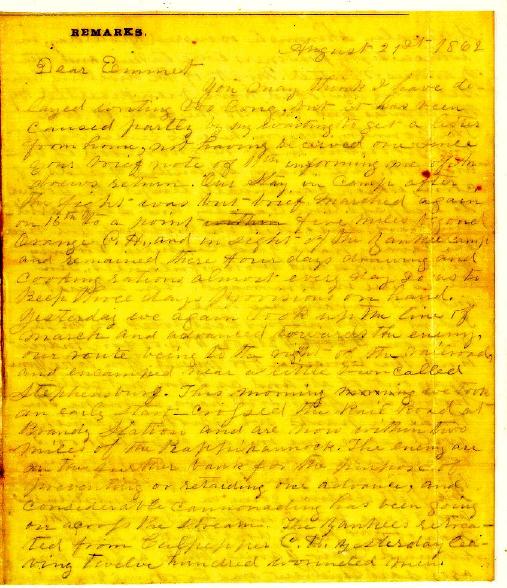 REMARKS.
August 21st 1862
Dear Emmet
You may think I have de-
layed writing too long, but it has been
caused partly by my wanting to get a letter
from home, not having received one since
your brief note of 11th informing me of the
return. Our stay in camp after
the fight was but brief marched again
on 16th to a point within five miles beyond
Orange C. H., and in sight of the Yankee camp
and remained there four days drawing and
cooking rations almost every day so as to
keep three days provisions on hand.
Yesterday we again took up the line of
march and advanced towards the enemy,
our route being to the right of the railroad,
and encamped near a little town called
Stephensburg. This morning we took
an early start—crossed the Rail Road at
Brandy Station and are now within two
miles of the Rappahannock. The enemy are
on the further bank for the purpose of
preventing or retarding our advance, and
considerable cannonading has been going
on across the stream. The Yankees retrea-
ted from Culpepper C. H. yesterday lea-
ving twelve hundred wounded men.